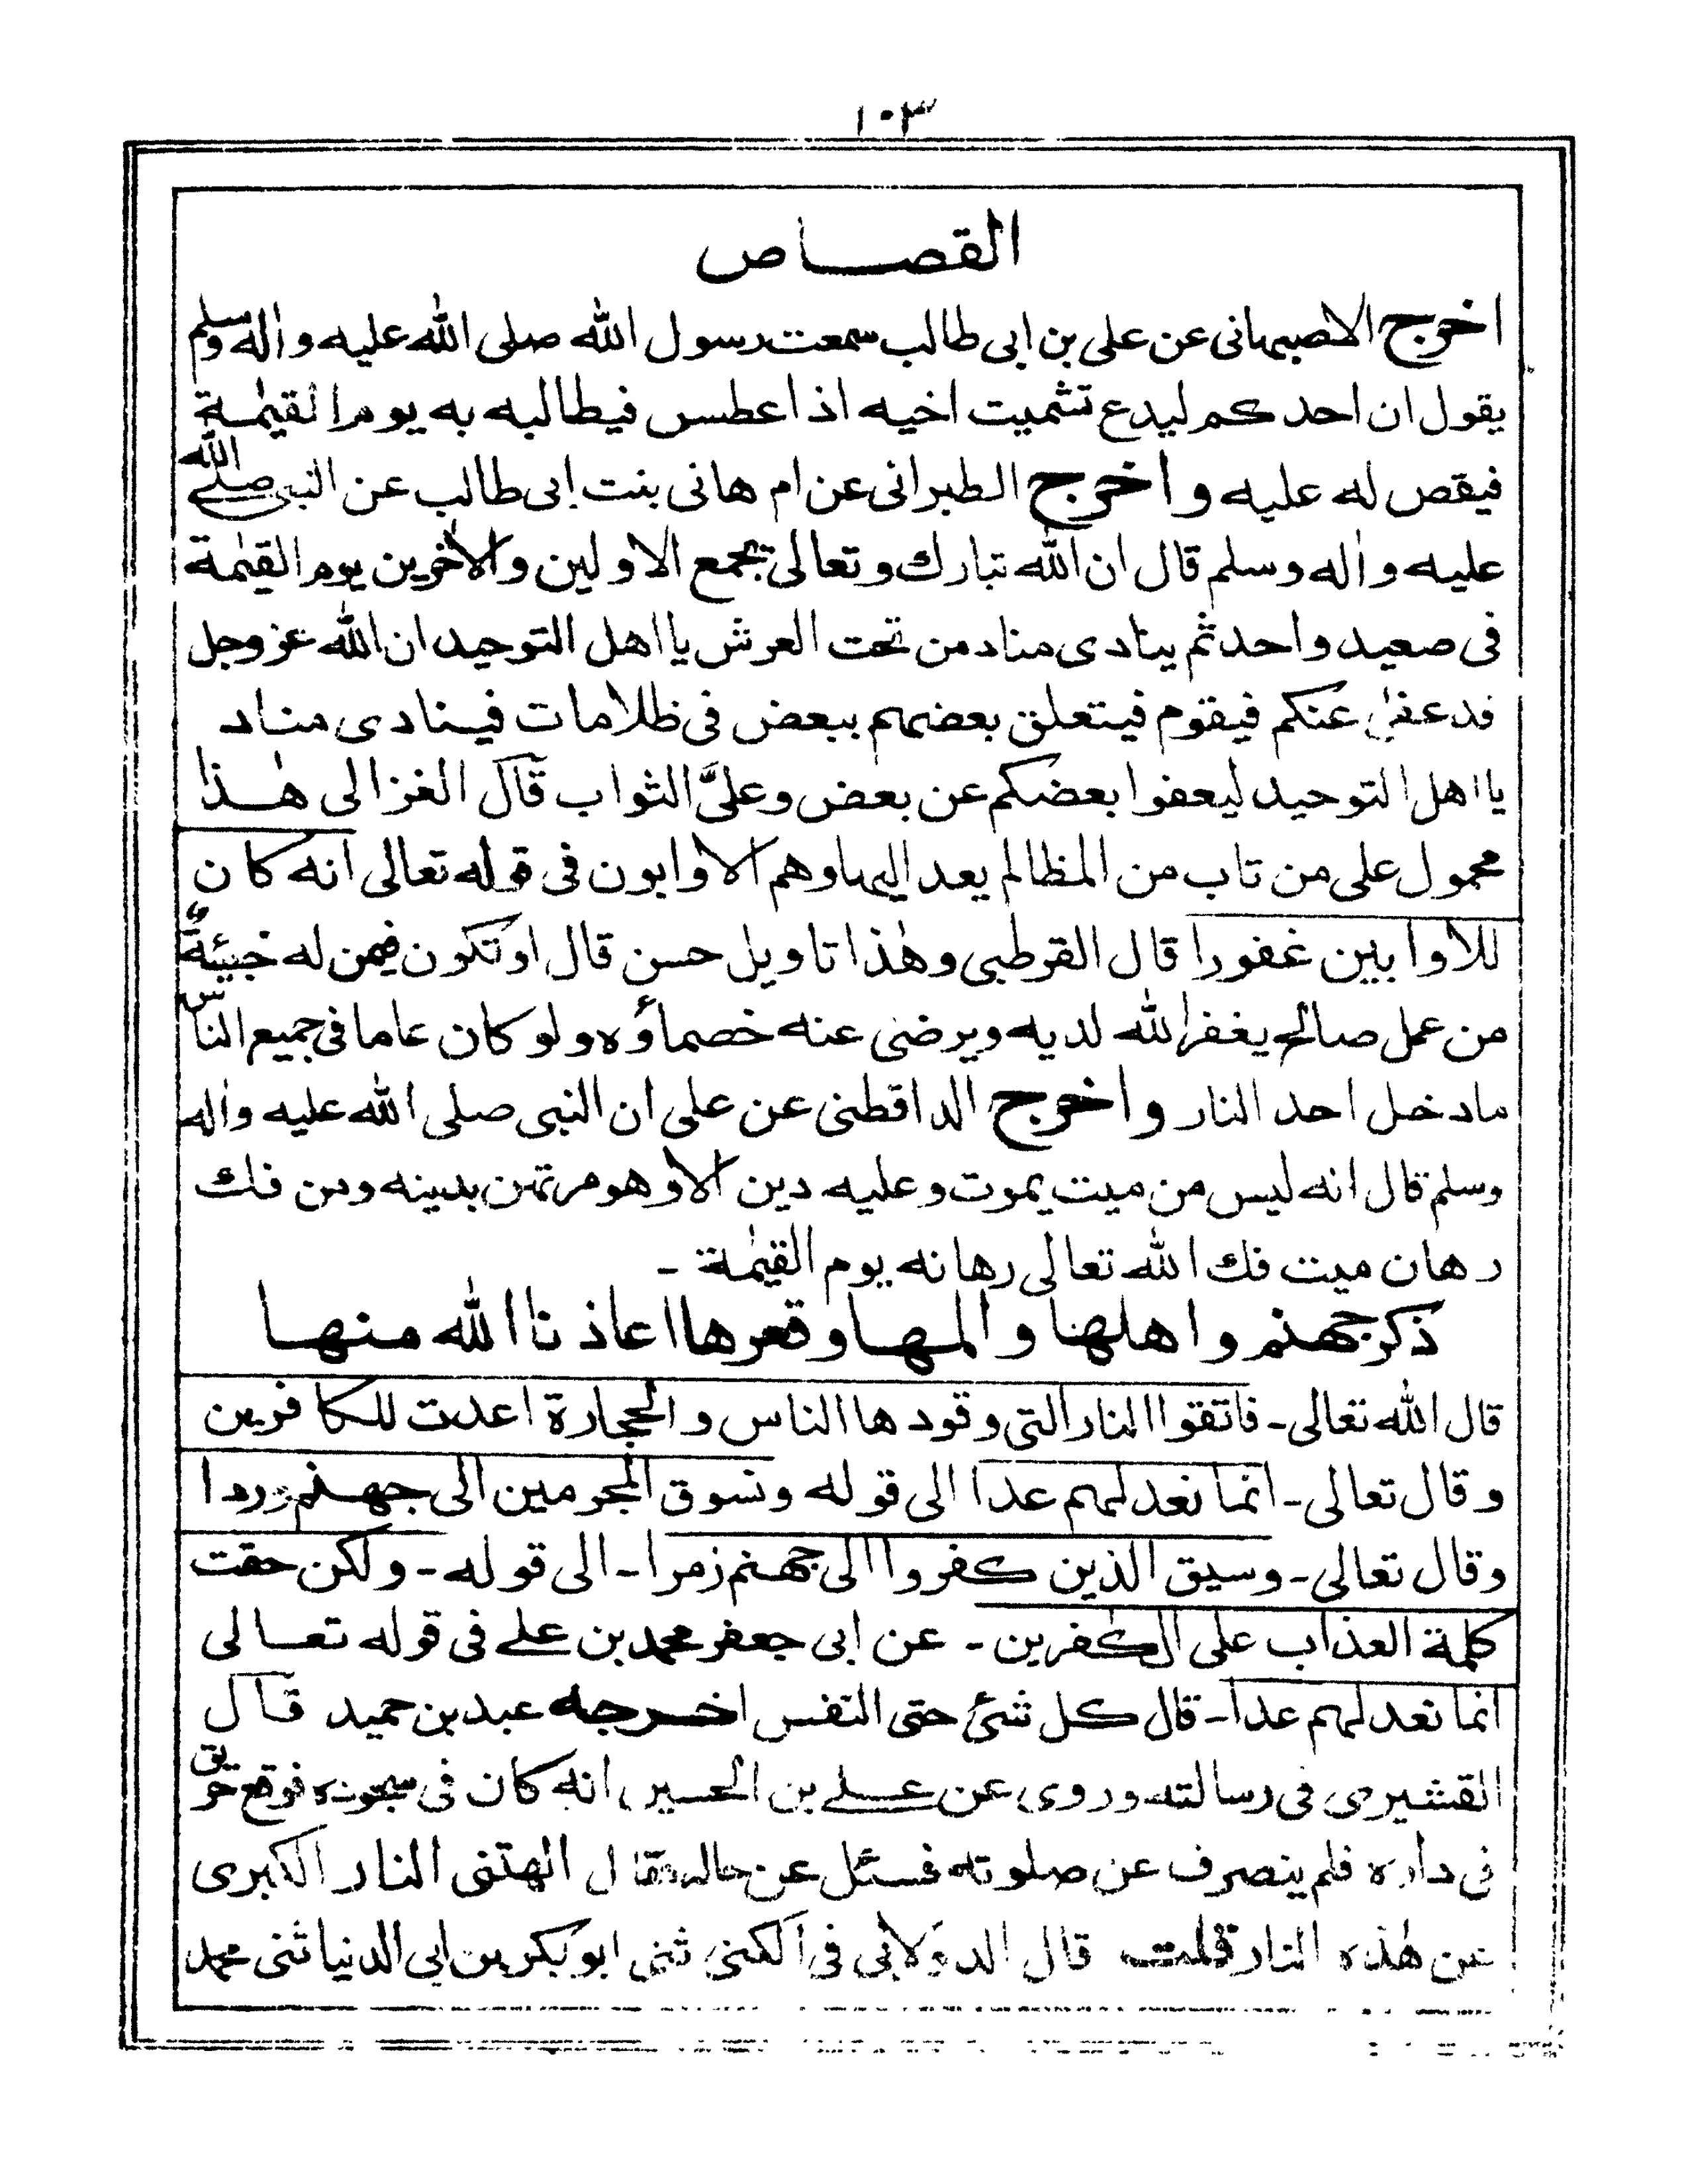 ١٠٣
القصاص
اخرج الاصبهانى عن على بن ابى طالب سمعت رسول الله صلى الله عليه واٰله وسلم
يقول ان احدكم ليدع تشميت اخيه اذا عطس فيطالبه به يوم القيٰمة
فيقص له عليه واخرج الطبرانى عن ام هانى بنت ابى طالب عن النبى صلے الله
عليه واٰله وسلم قال ان الله تبارك وتعالى يجمع الاولين والاٰخرين يوم القيٰمة
فى صعيد واحد ثم ينادى مناد من تحت العرش يا اهل التوحيد ان الله عز وجل
قد عفىٰ عنكم فيقوم فيتعلق بعضهم ببعض فى ظلامات فينادى مناد
يا اهل التوحيد ليعفوا بعضكم عن بعض وعلىَّ الثواب قال الغزالى هٰذا
محمول على من تاب من المظالم يعد اليها وهم الاوابون فى قوله تعالى انه كان
للاوابين غفورا قال القرطبى وهٰذا تاويل حسن قال او تكون فيمن له خبيئة
من عمل صالح يغفر الله لديه ويرضى عنه خصماؤه ولو كان عاما فى جميع الناس
مادخل احد النار واخرج الداقطنى عن على ان النبى صلى الله عليه واٰله
وسلم قال انه ليس من ميت يموت وعليه دين الا وهو مرتهن بدينه ومن فك
رهان ميت فك الله تعالى رهانه يوم القيٰمة ـ
ذكر جهنم واهلها والمها وقعرها اعاذنا الله منها
قال الله تعالى ـ فاتقوا النار التى وقودها الناس والحجارة اعدت للكافرين
وقال تعالى ـ انما نعد لهم عدا الى قوله ونسوق المجرمين الى جهنم وردا
وقال تعالى ـ وسيق الذين كفروا الى جهنم زمرا ـ الى قوله ـ ولكن حقت
كلمة العذاب على الكٰفرين ـ عن ابى جعفر محمد بن علے فى قوله تعالى
انما نعد لهم عدا ـ قال كل شئ حتى النفس اخرجه عبد بن حميد قال
القشيرى فى رسالته وروى عن علے بن الحسين انه كان فى سجوده فوقع حريق
فى داره فلم ينصرف عن صلوته فسئل عن حاله فقال الهتنى النار الكبرى
عن هٰذه النار قلت قال الدولابى فى الكنى ثنى ابو بكر بن ابى الدنيا ثنى محمد